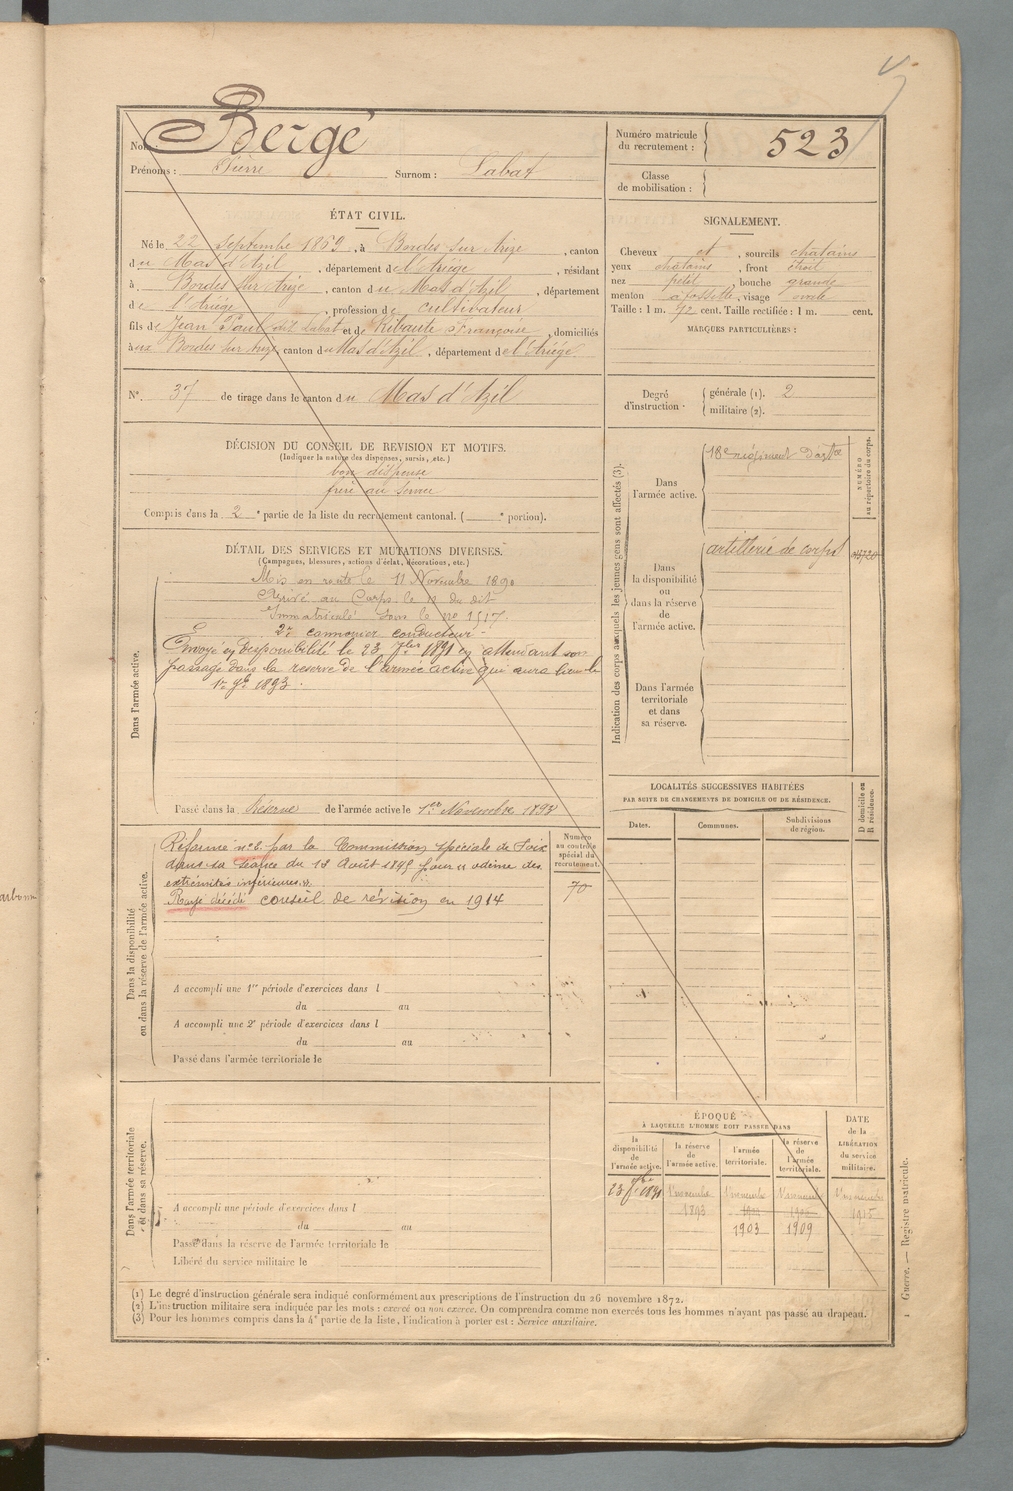 Nom : Bergé
Prénoms : Pierre Surnom : Labat
Numéro matricule
du recrutement : 523
Classe
de mobilisation :
ÉTAT CIVIL.
Né le 22 Septembre 1869, à Bordes sur Arize, canton
du Mas d'Azil, département de l'Ariège, résidant
à Bordes sur Arize, canton du Mas d'Azil, département
de l'Ariège, profession de cultivateur
fils de Jean Paul dit Labat et de Ribaute Françoise, domiciliés
aux Bordes sur Arize, canton du Mas d'Azil, département de l'Ariège
N° 37 de tirage dans le canton du Mas d'Azil
SIGNALEMENT.
Cheveux et, sourcils châtains
yeux châtains, front étroit
nez petit, bouche grande
menton à fossette, visage ovale
Taille : 1 m. 72 cent. Taille rectifiée : 1 m. cent.
MARQUES PARTICULIÈRES :
Degré
d'instruction
générale (1). 2
militaire (2).
DÉCISION DU CONSEIL DE REVISION ET MOTIFS.
(Indiquer la nature des dispenses, sursis, etc.)
bon dispensé
frère au service
Compris dans la 2e partie de la liste du recrutement cantonal. ( e portion).
DÉTAIL DES SERVICES ET MUTATIONS DIVERSES.
(Campagnes, blessures, actions d'éclat, décorations, etc.)
Dans l'armée active.
Mis en route le 11 Novembre 1890
Arrivé au Corps le 12 du dit
Immatriculé sous le no 1517
2e cannonier conducteur
Envoyé en Disponibilité le 23 7bre 1891 en attendant son
passage dans la reserve de l'armée active qui aura lieu le
1er 9bre 1893.
Passé dans la Réserve de l'armée active le 1er Novembre 1893
Indication des corps auxquels les jeunes gens sont affectés (3).
NUMÉRO
au répertoire du corps.
Dans
l'armée active.
18e régiment d'artie
Dans
la disponibilité
ou
dans la réserve
de
l'armée active.
artillerie de corps
Dans l'armée
territoriale
et dans
sa réserve.
Dans la disponibilité
ou dans la réserve de l'armée active.
Numéro
au contrôle
spécial du
recrutement.
70
Réformé no 2 par la Commission spéciale de Foix
dans sa séance du 18 Août 1895 pour « œdème des
extrémités inférieures ».
Rayé décédé conseil de révision en 1914
A accompli une 1re période d'exercices dans l
du au
A accompli une 2e période d'exercices dans l
du au
Passé dans l'armée territoriale le
LOCALITÉS SUCCESSIVES HABITÉES
PAR SUITE DE CHANGEMENTS DE DOMICILE OU DE RÉSIDENCE.
Dates.
Communes.
Subdivisions
de région.
D domicile ou
R résidence.
Dans l'armée territoriale
et dans sa réserve.
A accompli une période d'exercices dans l
du au
Passé dans la réserve de l'armée territoriale le
Libéré du service militaire le
ÉPOQUE
À LAQUELLE L'HOMME DOIT PASSER DANS
la
disponibilité
de
l'armée active.
la réserve
de
l'armée active.
l'armée
territoriale.
la réserve
de
l'armée
territoriale.
DATE
de la
LIBÉRATION
du service
militaire.
23 7bre 1891
1er novembre
1893
1er novembre
1903
1er novembre
1909
1er novembre
1915
(1) Le degré d'instruction générale sera indiqué conformément aux prescriptions de l'instruction du 26 novembre 1872.
(2) L'instruction militaire sera indiquée par les mots : exercé ou non exercé. On comprendra comme non exercés tous les hommes n'ayant pas passé au drapeau.
(3) Pour les hommes compris dans la 4e partie de la liste, l'indication à porter est : Service auxiliaire.
Guerre. — Registre matricule.